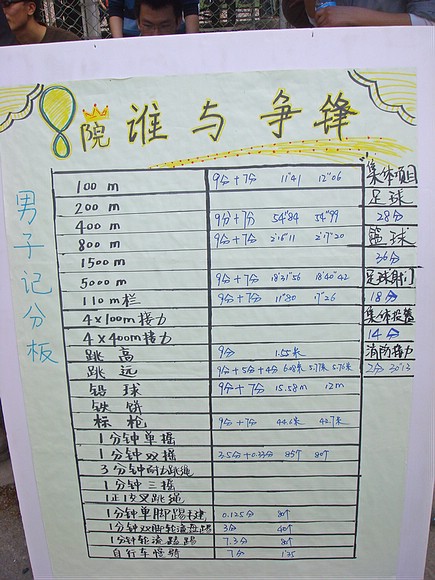 8院 谁与争锋
男子记分板
100 m 9分+7分 11"41 12"06
200 m
400 m 9分+7分 54"84 54"99
800 m 9分+7分 2'16"11 2'17"20
1500 m
5000 m 9分+7分 18'31"56 18'40"42
110 m栏 9分+7分
4×100m接力
4×400m接力
跳高 9分 1.55米
跳远 9分+5分+4分 5.76米
铅球 9分+7分 15.58m 12m
铁饼
标枪 9分+7分 44.6米 42.7米
1分钟单摇
1分钟双摇 3.5分+0.33分 85个 80个
3分钟耐力跳绳
1分钟三摇
1分钟单脚踢毽 0.125分 80个
3分 40个
7.3分 80个
自行车慢骑 7分 1'25
集体项目
足球
28分
篮球
36分
足球射门
18分
集体投篮
14分
消防接力
2分 30"13